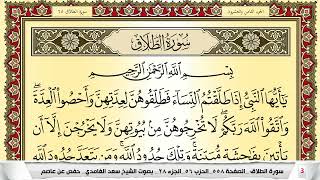 الجزء الثامن والعشرون
سورة الطلاق ٦٥
سُورَةُ الطَّلَاقِ
بِسْمِ اللَّهِ الرَّحْمَٰنِ الرَّحِيمِ
يَا أَيُّهَا النَّبِيُّ إِذَا طَلَّقْتُمُ النِّسَاءَ فَطَلِّقُوهُنَّ لِعِدَّتِهِنَّ وَأَحْصُوا الْعِدَّةَ
وَاتَّقُوا اللَّهَ رَبَّكُمْ لَا تُخْرِجُوهُنَّ مِنْ بُيُوتِهِنَّ وَلَا يَخْرُجْنَ إِلَّا أَنْ
يَأْتِينَ بِفَاحِشَةٍ مُبَيِّنَةٍ وَتِلْكَ حُدُودُ اللَّهِ وَمَنْ يَتَعَدَّ حُدُودَ اللَّهِ
3 سورة الطلاق.. الصفحة ٥٥٨.. الحزب ٥٦.. الجزء ٢٨.. بصوت الشيخ سعد الغامدي.. حفص عن عاصم